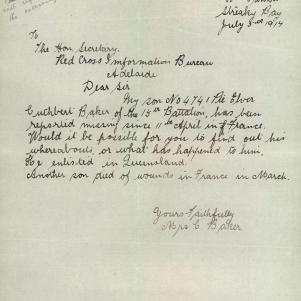 Streaky Bay
July 3rd 1917
To
The Hon. Secretary.
Red Cross Information Bureau
Adelaide
Dear Sir
My son No 4741 Pte Elver
Cuthbert Baker of the 15th Battalion, has been
reported missing since 11th April in France.
Would it be possible for you to find out his
whereabouts, or what has happened to him.
He enlisted in Queensland.
Another son died of wounds in France in March.
Yours faithfully
Mrs C Baker